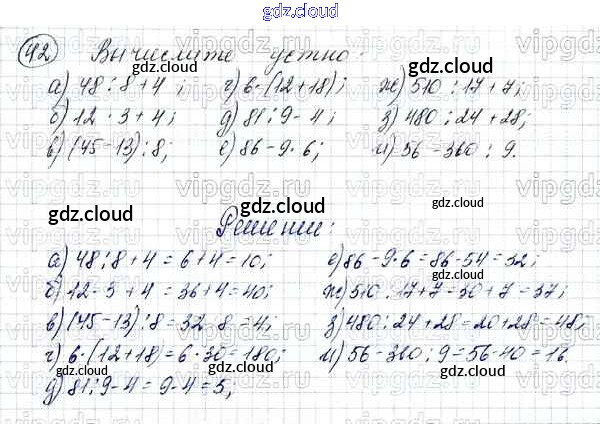 gdz.cloud
42 Вычислите устно:
а) 48 : 8 + 4 ; г) 6·(12+18); ж) 510 : 17 + 7;
б) 12 · 3 + 4; д) 81 : 9 - 4; з) 480 : 24 + 28;
в) (45-13) : 8; е) 86 - 9·6; и) 56 - 360 : 9.
gdz.cloud gdz.cloud gdz.cloud
Решение:
а) 48 : 8 + 4 = 6+4 = 10; е) 86 - 9·6 = 86-54 = 32;
б) 12 · 3 + 4 = 36+4 = 40; ж) 510 : 17+7 = 30+7 = 37;
в) (45-13) : 8 = 32 : 8 = 4; з) 480 : 24+28 = 20+28 = 48;
г) 6·(12+18) = 6·30 = 180; и) 56 - 360 : 9 = 56-40 = 16.
д) 81 : 9-4 = 9-4 = 5;
gdz.cloud gdz.cloud gdz.cloud
gdz.cloud gdz.cloud gdz.cloud
vipgdz.ru vipgdz.ru vipgdz.ru